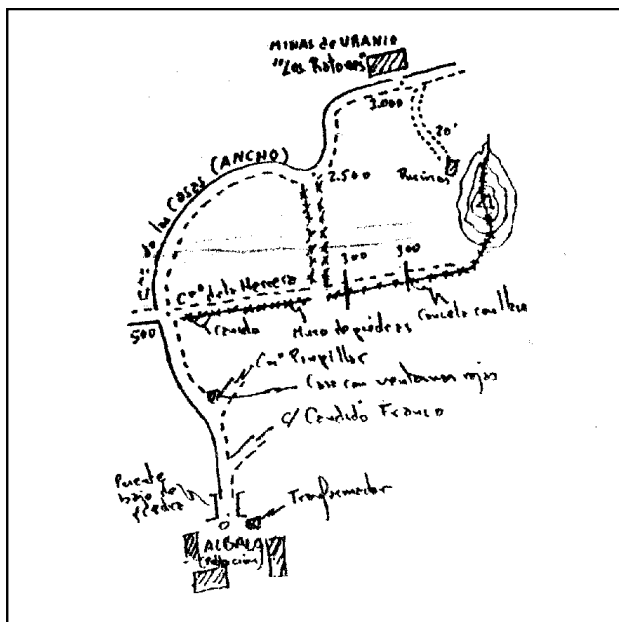 MINAS de URANIO
"Los Ratones"
3.000
20'
Ruinas
2.500
de las Casas (ANCHO)
300
300
Cmº de la Herrera
Cancela
Muro de piedras
Cancela con llave
500
Cmº Pimpillar
Casa con ventanas rojas
C/ Candido Franco
Puente
bajo de
piedra
Transformador
0
ALBALA
(Población)